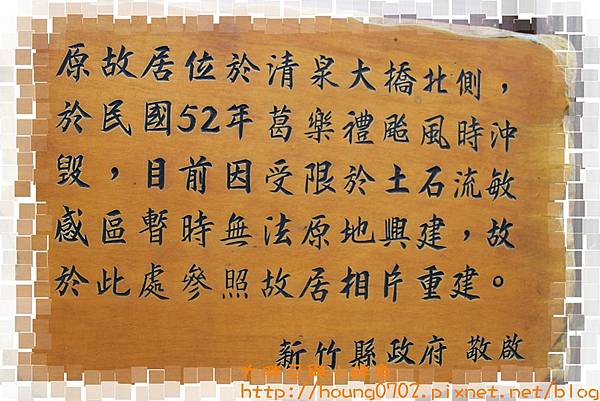 原故居位於清泉大橋北側，
於民國52年葛樂禮颱風時沖
毀，目前因受限於土石流敏
感區暫時無法原地興建，故
於此處參照故居相片重建。
新竹縣政府 敬啟
http://houng0702.pixnet.net/blog